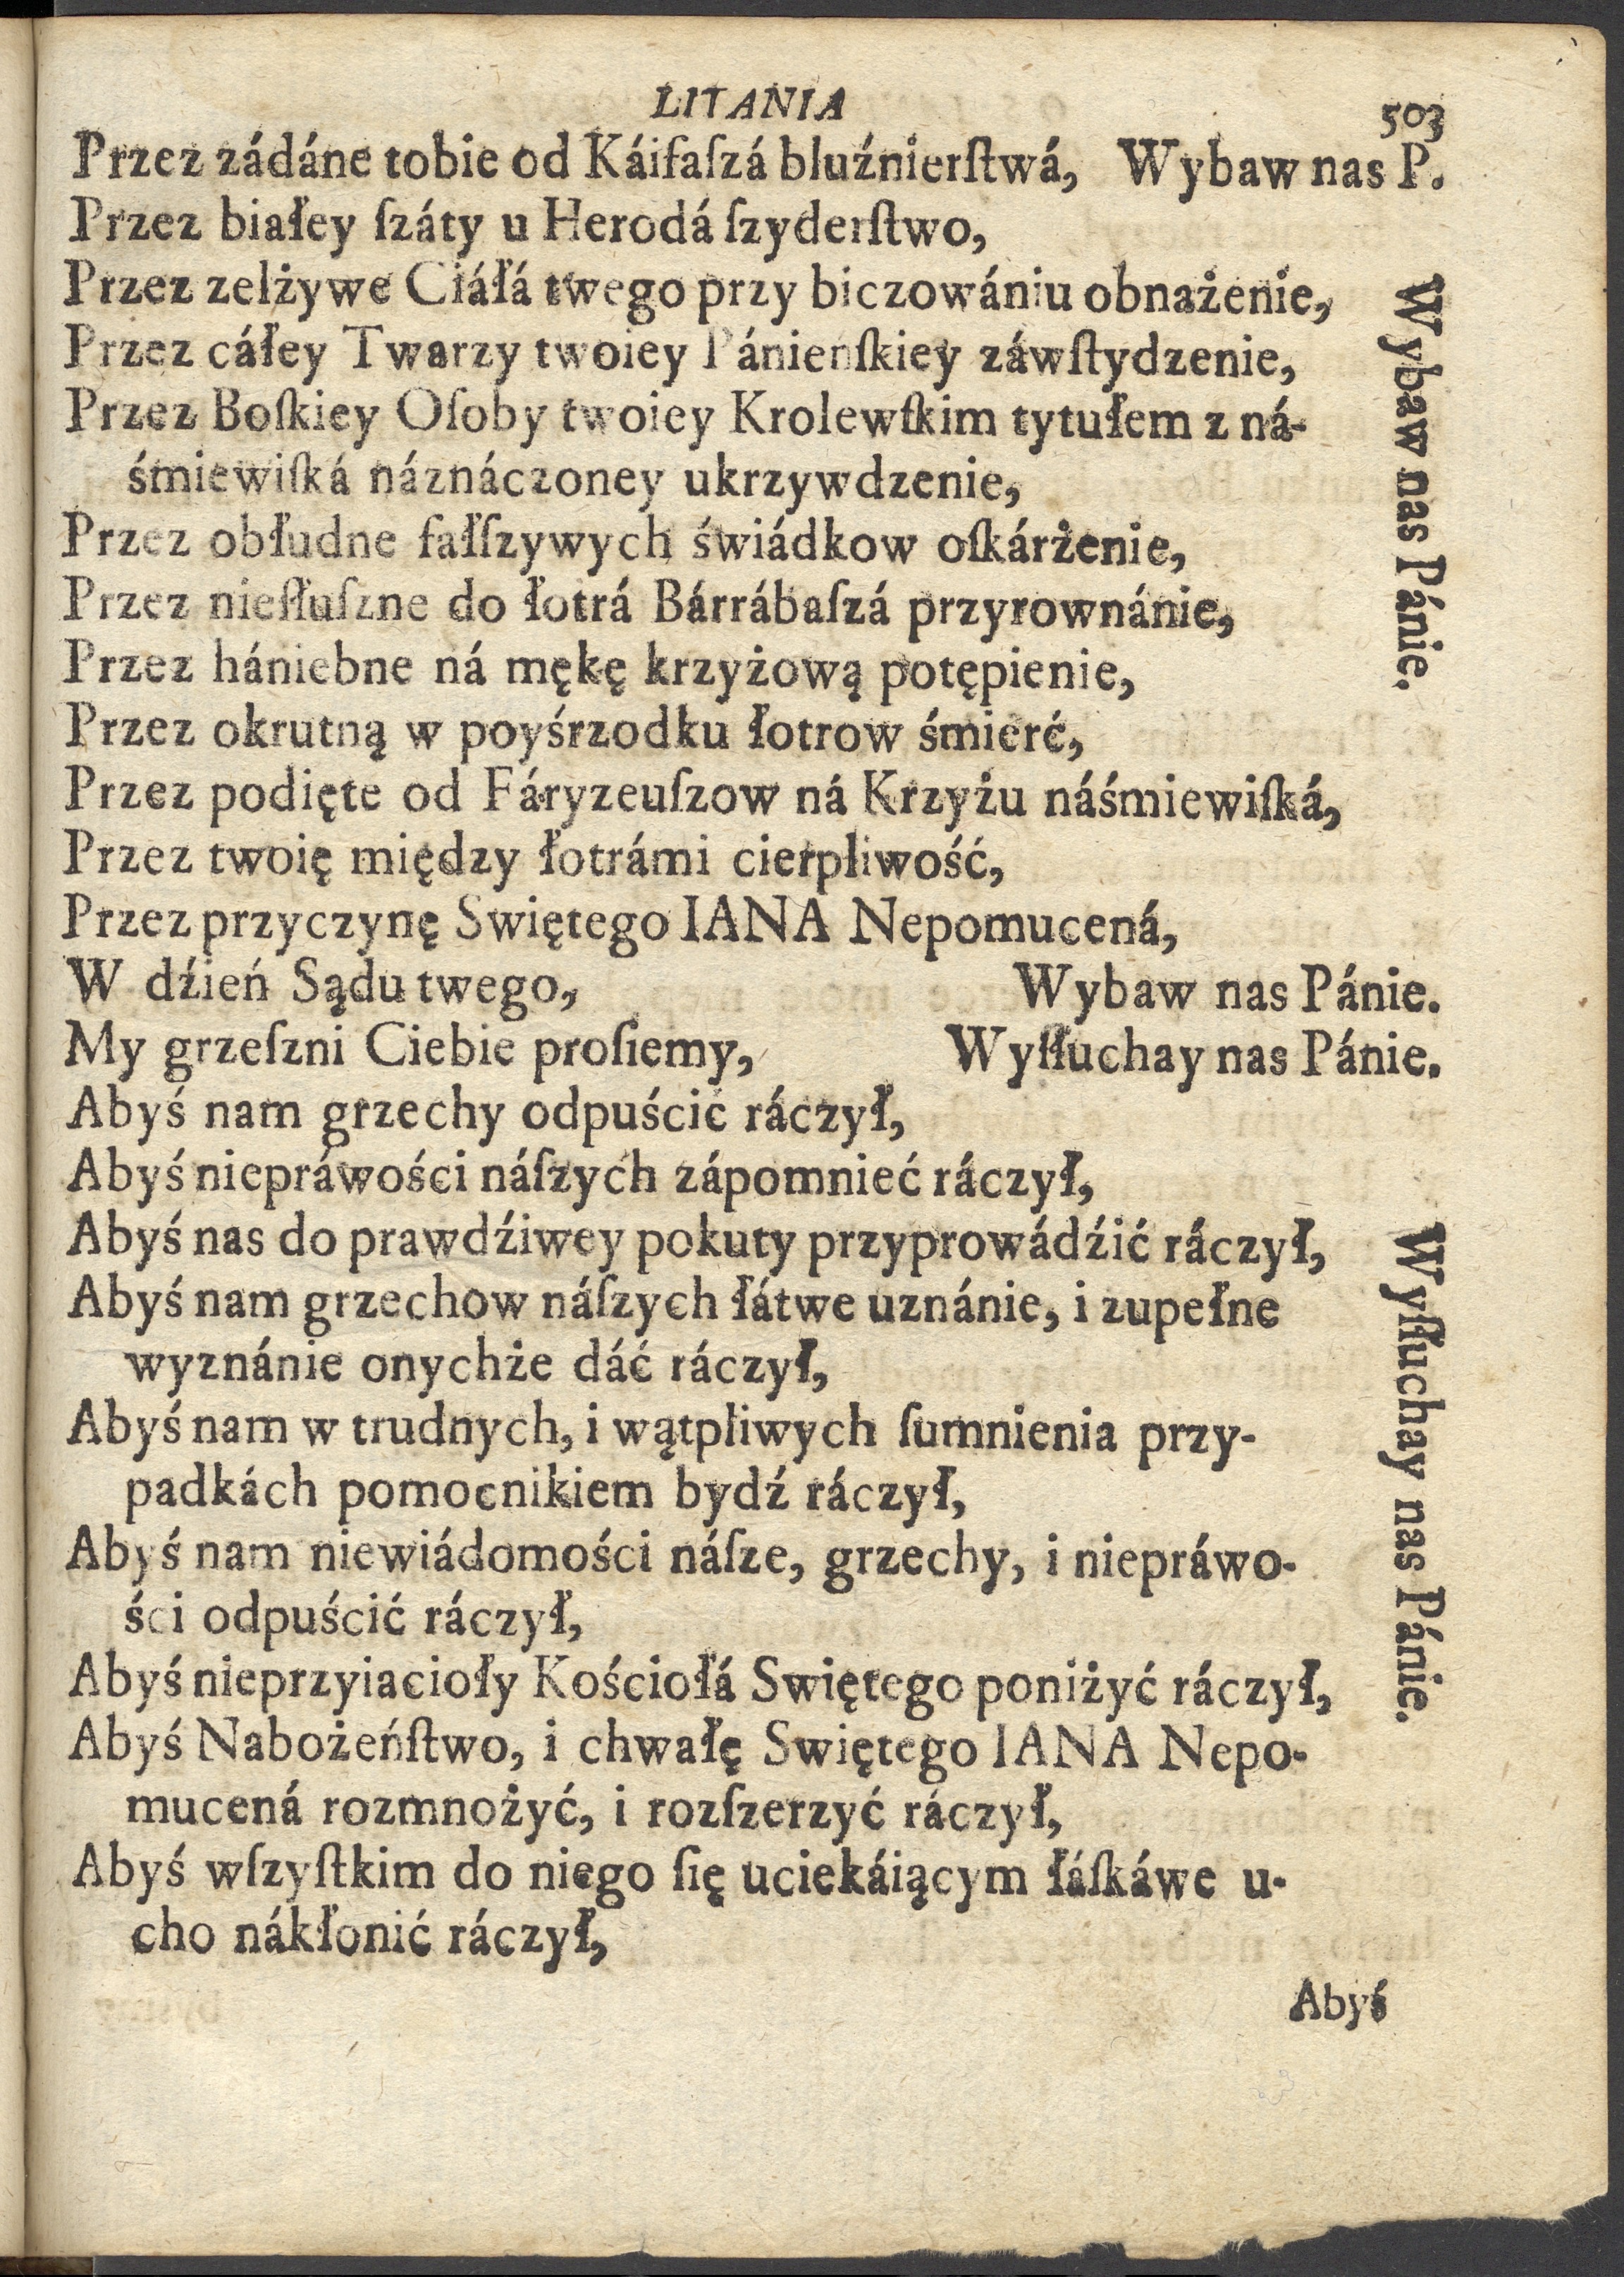 LITANIA 503
Przez zádáne tobie od Káifaſzá bluźnierſtwá, Wybaw nas P.
Przez białey ſzáty u Herodá ſzyderſtwo,
Przez zelżywe Ciáłá twego przy biczowániu obnażenie,
Przez cáłey Twarzy twoiey Pánieńſkiey záwſtydzenie,
Przez Boſkiey Oſoby twoiey Krolewſkim tytułem z ná-
śmiewiſká náznáczoney ukrzywdzenie,
Przez obłudne fałſzywych świádkow oſkárżenie,
Przez niesłuſzne do łotrá Bárrábaſzá przyrownánie,
Przez hániebne ná mękę krzyżową potępienie,
Przez okrutną w poyśrzodku łotrow śmierć,
Przez podięte od Fáryzeuſzow ná Krzyżu náśmiewiſká,
Przez twoię między łotrámi cierpliwość,
Przez przyczynę Swiętego IANA Nepomucená,
Wybaw nas Pánie.
W dźień Sądu twego, Wybaw nas Pánie.
My grzeſzni Ciebie proſiemy, Wyſłuchay nas Pánie.
Abyś nam grzechy odpuścić ráczył,
Abyś niepráwości náſzych zápomnieć ráczył,
Abyś nas do prawdźiwey pokuty przyprowádźić ráczył,
Abyś nam grzechow náſzych łátwe uznánie, i zupełne
wyznánie onychże dáć ráczył,
Abyś nam w trudnych, i wątpliwych ſumnienia przy-
padkách pomocnikiem bydź ráczył,
Abyś nam niewiádomości náſze, grzechy, i niepráwo-
ści odpuścić ráczył,
Abyś nieprzyiacioły Kościołá Swiętego poniżyć ráczył,
Abyś Nabożeńſtwo, i chwałę Swiętego IANA Nepo-
mucená rozmnożyć, i rozſzerzyć ráczył,
Abyś wſzyſtkim do niego ſię uciekáiącym łáſkáwe u-
cho nákłonić ráczył,
Wyſłuchay nas Pánie.
Abyś